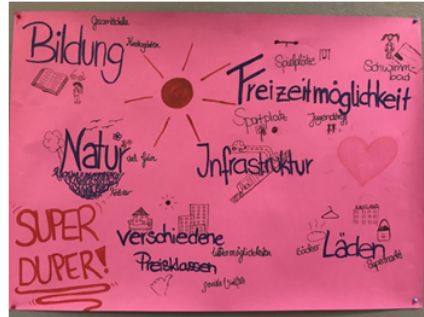 Gesamtschule
Bildung
Kindergärten
Spielplätze
Schwimm-
bad
Freizeitmöglichkeit
Sportplatz
Jugendtreff
Natur
viel Grün
Felder
Infrastruktur
SUPER
DUPER!
Verschiedene
Preisklassen
soziale Vielfalt
Läden
Bäcker
Supermarkt